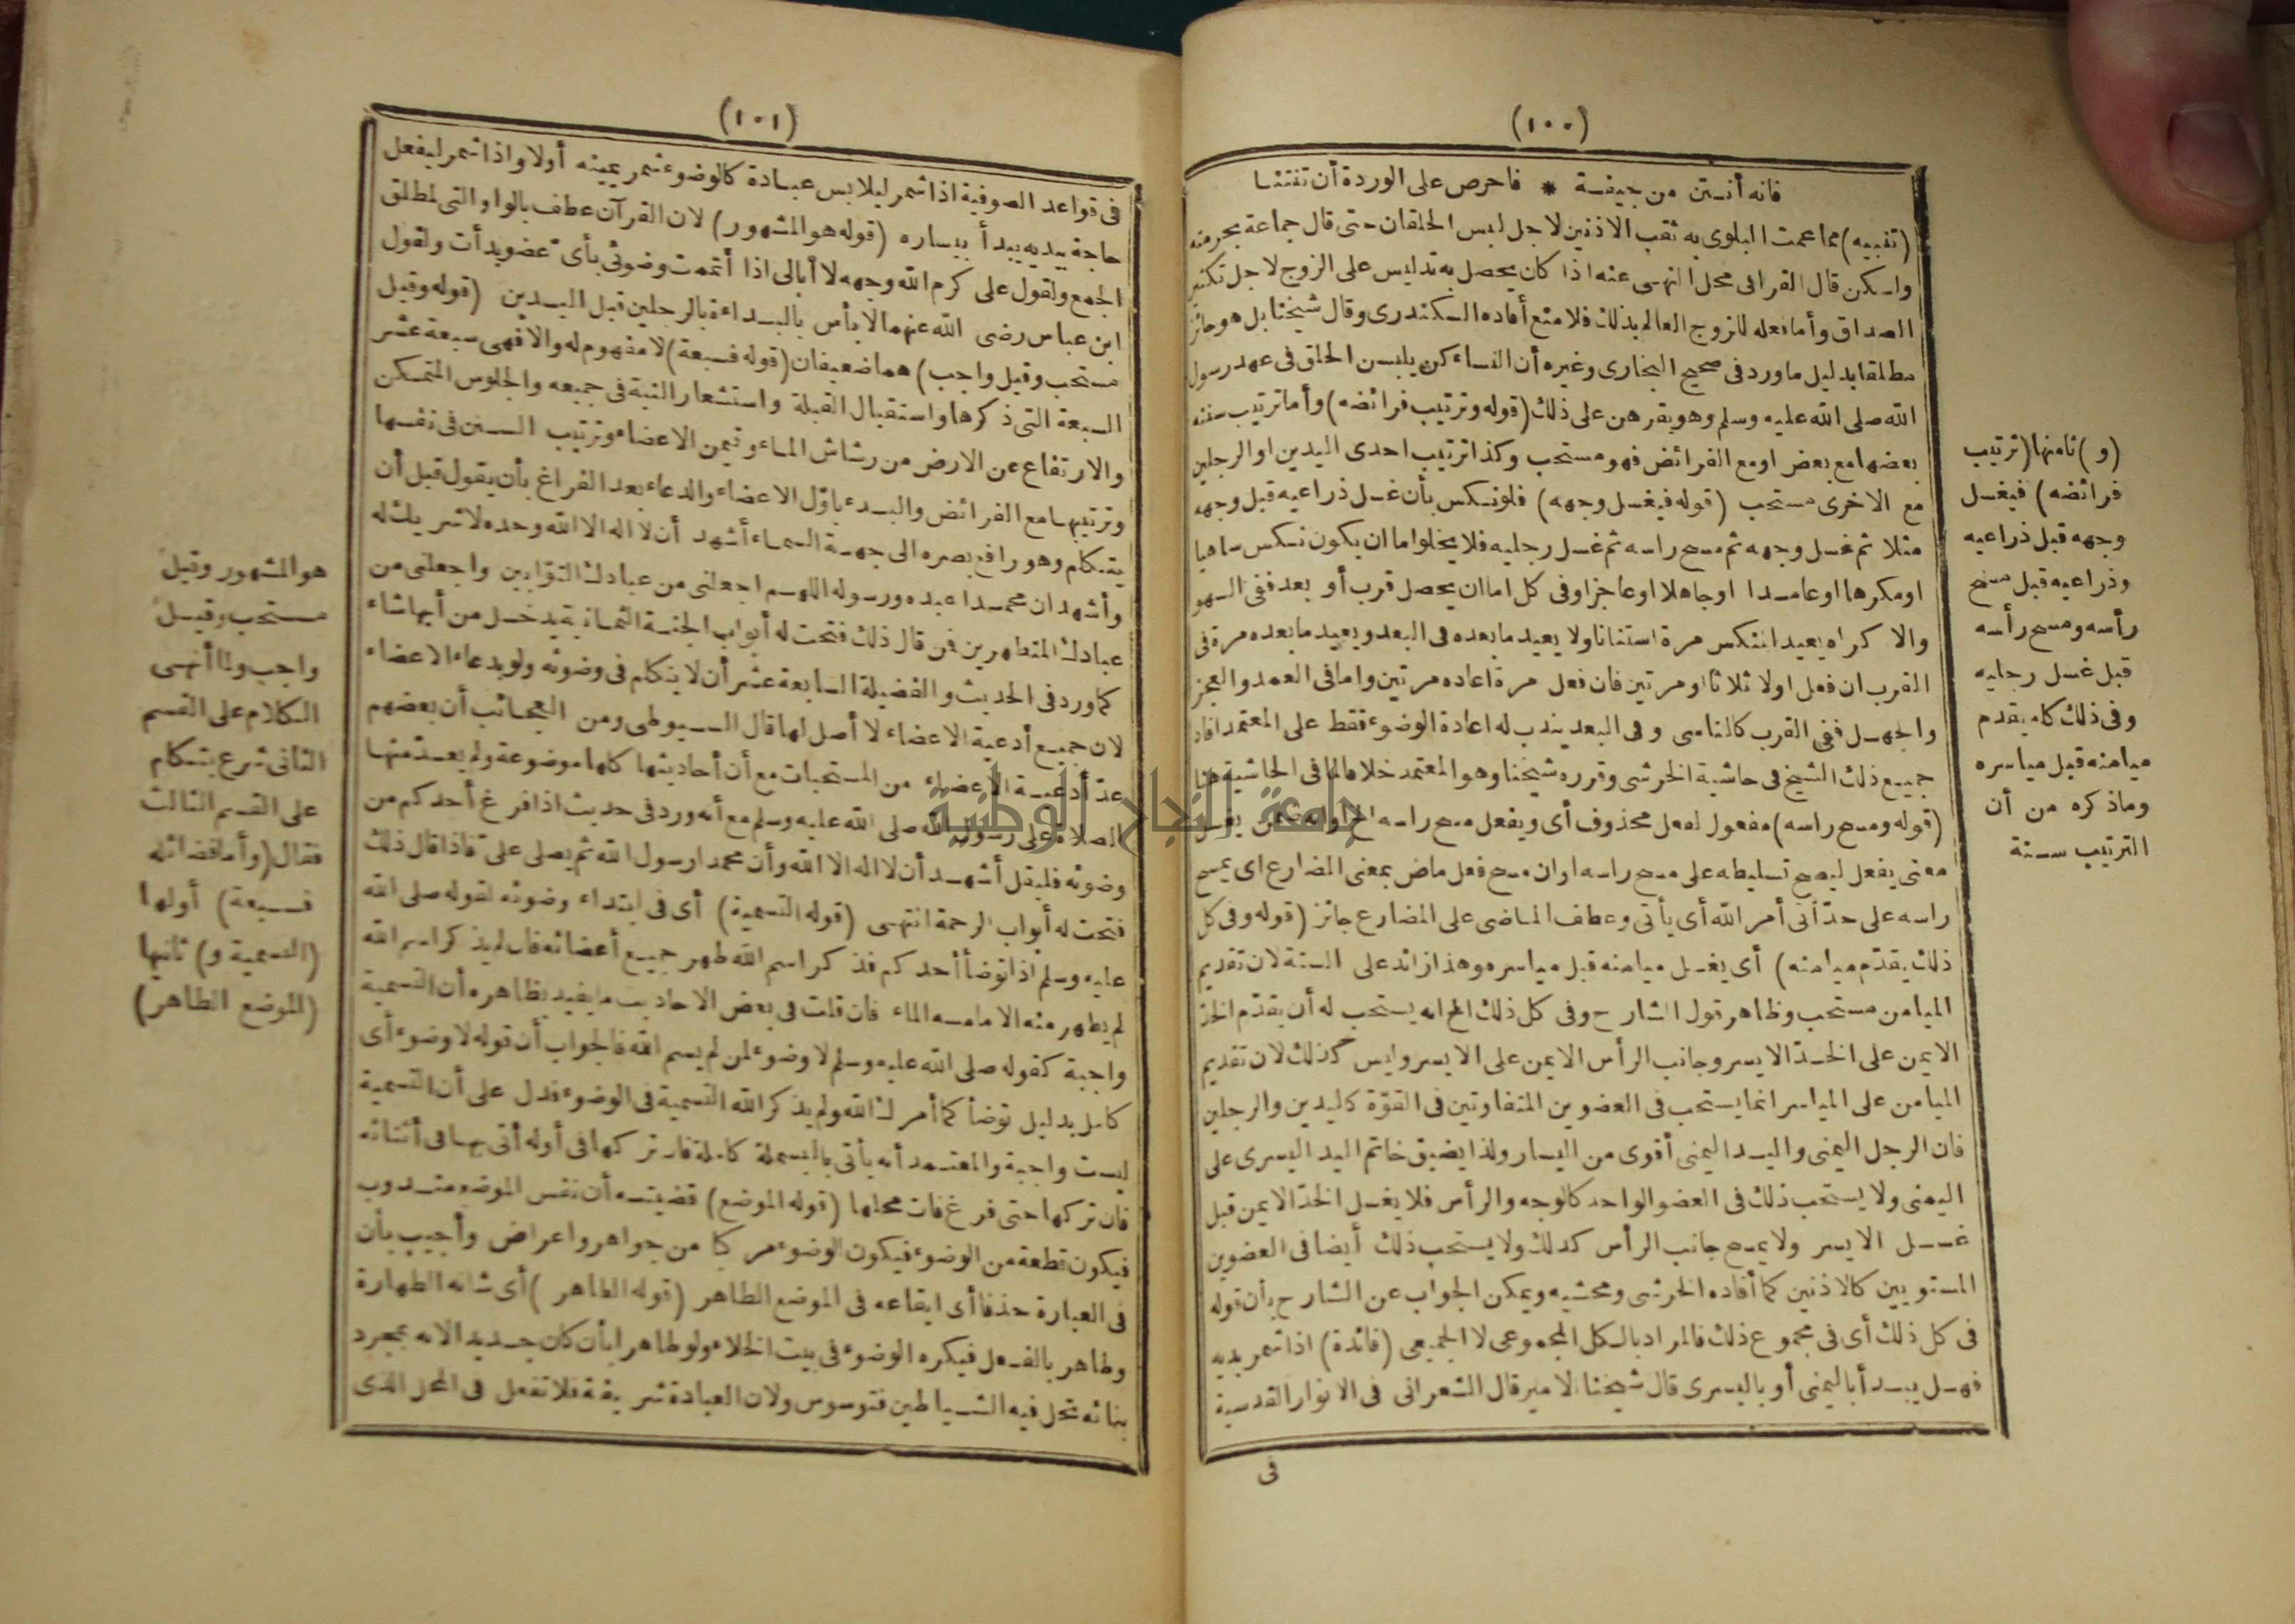 (١٠٠)
فانه أنتن من جيفة * فاحرص على الوردة أن تنتنا
(تنبيه) مما عمت البلوى به ثقب الاذنين لاجل لبس الحلقان حتى قال جماعة بحرمته
ولكن قال القرافى محل النهى عنه اذا كان يحصل به تدليس على الزوج لاجل تكثير
الصداق وأما فعله للزوج العالم بذلك فلا منع أفاده السكندرى وقال شيخنا بل هو جائز
مطلقا بدليل ما ورد فى صحيح البخارى وغيره أن النساء كن يلبسن الحلق فى عهد رسول
الله صلى الله عليه وسلم وهو يقرهن على ذلك (قوله وترتيب فرائضه) وأما ترتيب سننه
بعضها مع بعض او مع الفرائض فهو مستحب وكذا ترتيب احدى اليدين او الرجلين
مع الاخرى مستحب (قوله فيغسل وجهه) فلو نكس بأن غسل ذراعيه قبل وجهه
مثلا ثم غسل وجهه ثم مسح راسه ثم غسل رجليه فلا يخلوا ما ان يكون نكس ساهيا
او مكرها او عامدا او جاهلا او عاجزا وفى كل اما ان يحصل قرب أو بعد ففى السهو
والاكراه يعيد المنكس مرة استنانا ولا يعيد ما بعده فى البعد ويعيد ما بعده مرة فى
القرب ان فعل اولا ثلاثا او مرتين فان فعل مرة اعاده مرتين واما فى العمد والعجز
والجهل ففى القرب كالناسى وفى البعد يندب له اعادة الوضوء فقط على المعتمد افاد
جميع ذلك الشيخ فى حاشية الخرشى وقرره شيخنا وهو المعتمد خلافا لما فى الحاشية هنا
(قوله ومسح راسه) مفعول لفعل محذوف أى ويفعل مسح راسه الخ او انه ضمن يغسل
معنى يفعل ليصح تسليطه على مسح راسه او ان مسح فعل ماض بمعنى المضارع اى يمسح
راسه على حدّ أتى أمر الله أى يأتى وعطف الماضى على المضارع جائز (قوله وفى كل
ذلك يقدّم ميامنه) أى يغسل ميامنه قبل مياسره وهذا زائد على السنة لان تقديم
الميامن مستحب وظاهر قول الشارح وفى كل ذلك الخ انه يستحب له أن يقدّم الخدّ
الايمن على الخدّ الايسر وجانب الرأس الايمن على الايسر وليس كذلك لان تقديم
الميامن على المياسر انما يستحب فى العضوين المتفاوتين فى القوّة كاليدين والرجلين
فان الرجل اليمنى واليد اليمنى أقوى من اليسار ولذا يضيق خاتم اليد اليسرى على
اليمنى ولا يستحب ذلك فى العضو الواحد كالوجه والرأس فلا يغسل الخدّ الايمن قبل
غسل الايسر ولا يمسح جانب الرأس كذلك ولا يستحب ذلك أيضا فى العضوين
المستويين كالاذنين كما أفاده الخرشى ومحشيه ويمكن الجواب عن الشارح بأن قوله
فى كل ذلك أى فى مجموع ذلك فالمراد بالكل المجموعى لا الجميعى (فائدة) اذا شمر يديه
فهل يبدأ باليمنى أو باليسرى قال شيخنا الامير قال الشعرانى فى الانوار القدسية
فى
(و) ثامنها (ترتيب
فرائضه) فيغسل
وجهه قبل ذراعيه
وذراعيه قبل مسح
رأسه ومسح رأسه
قبل غسل رجليه
وفى ذلك كله يقدم
ميامنه قبل مياسره
وماذكره من أن
الترتيب سنة
(١٠١)
فى قواعد الصوفية اذا شمر ليلابس عبادة كالوضوء شمر يمينه أولا واذا شمر ليفعل
حاجة بيديه يبدأ بيساره (قوله هو المشهور) لان القرآن عطف بالواو التى لمطلق
الجمع ولقول على كرم الله وجهه لا أبالى اذا أتممت وضوئى بأى عضو بدأت ولقول
ابن عباس رضى الله عنهما لا بأس بالبداءة بالرجلين قبل اليدين (قوله وقيل
مستحب وقيل واجب) هما ضعيفان (قوله فسبعة) لا مفهوم له والا فهى سبعة عشر
السبعة التى ذكرها واستقبال القبلة واستشعار النية فى جميعه والجلوس المتمكن
والارتفاع عن الارض من رشاش الماء وتيمن الاعضاء وترتيب السنن فى نفسها
وترتيبها مع الفرائض والبدء باوّل الاعضاء والدعاء بعد الفراغ بأن يقول قبل أن
يتكلم وهو رافع بصره الى جهة السماء أشهد أن لا اله الا الله وحده لا شريك له
وأشهد ان محمدا عبده ورسوله اللهم اجعلنى من عبادك التوّابين واجعلنى من
عبادك المتطهرين فمن قال ذلك فتحت له أبواب الجنة الثمانية يدخل من أيها شاء
كما ورد فى الحديث والفضيلة السابعة عشر أن لا يتكلم فى وضوئه ولو بدعاء الاعضاء
لان جميع أدعية الاعضاء لا أصل لها قال السيوطى ومن العجائب أن بعضهم
عدّ أدعية الاعضاء من المستحبات مع أن أحاديثها كلها موضوعة ولم يعدّ منها
الصلاة على رسول الله صلى الله عليه وسلم مع أنه ورد فى حديث اذا فرغ أحدكم من
وضوئه فليقل أشهد أن لا اله الا الله وأن محمدا رسول الله ثم يصلى علىّ فاذا قال ذلك
فتحت له أبواب الرحمة انتهى (قوله التسمية) أى فى ابتداء وضوئه لقوله صلى الله
عليه وسلم اذا توضأ أحدكم فذكر اسم الله طهر جميع أعضائه فان لم يذكر اسم الله
لم يطهر منه الا ما مسه الماء فان قلت فى بعض الاحاديث ما يفيد بظاهره أن التسمية
واجبة كقوله صلى الله عليه وسلم لا وضوء لمن لم يسم الله فالجواب أن قوله لا وضوء أى
كامل بدليل توضأ كما أمرك الله ولم يذكر الله التسمية فى الوضوء فدل على أن التسمية
ليست واجبة والمعتمد أنه يأتى بالبسملة كاملة فان تركها فى أوله أتى بها فى أثنائه
فان تركها حتى فرغ فات محلها (قوله الموضع) قضيته أن نفس الموضع مندوب
فيكون قطعة من الوضوء فيكون الوضوء مركبا من جواهر واعراض وأجيب بأن
فى العبارة حذفا أى ايقاعه فى الموضع الطاهر (قوله الطاهر) أى شانه الطهارة
وطاهر بالفعل فيكره الوضوء فى بيت الخلاء ولو طاهرا بأن كان جديدا لانه بمجرد
بنائه تحل فيه الشياطين فتوسوس ولان العبادة شريفة فلا تفعل فى المحل الذى
هو المشهور وقيل
مستحب وقيل
واجب ولما أنهى
الكلام على القسم
الثانى شرع يتكلم
على القسم الثالث
فقال (وأما فضائله
فسبعة) أولها
(التسمية و) ثانيها
(الموضع الطاهر)
جامعة النجاح الوطنية